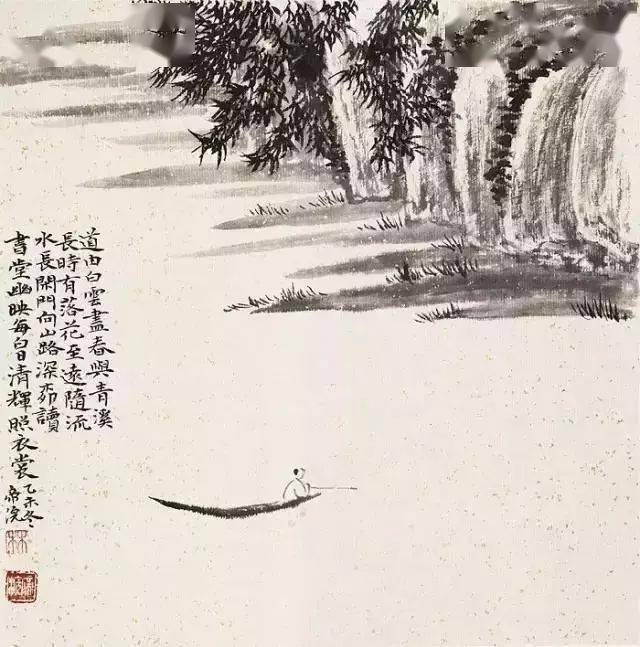 道由白雲盡春與青溪
長時有落花至遠隨流
水長閑門向山路深柳讀
書堂幽映每白日清輝照衣裳
乙未冬
帝浣
林